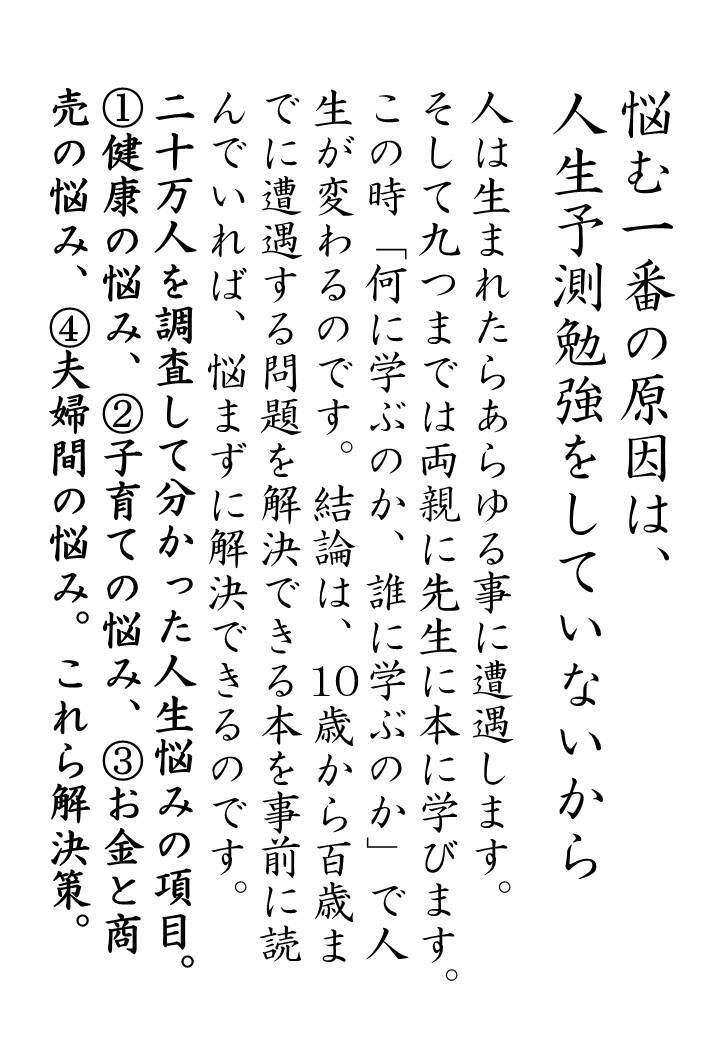 悩む一番の原因は、
人生予測勉強をしていないから
人は生まれたらあらゆる事に遭遇します。
そして九つまでは両親に先生に本に学びます。
この時「何に学ぶのか、誰に学ぶのか」で人
生が変わるのです。結論は、10歳から百歳ま
でに遭遇する問題を解決できる本を事前に読
んでいれば、悩まずに解決できるのです。
二十万人を調査して分かった人生悩みの項目。
①健康の悩み、②子育ての悩み、③お金と商
売の悩み、④夫婦間の悩み。これら解決策。